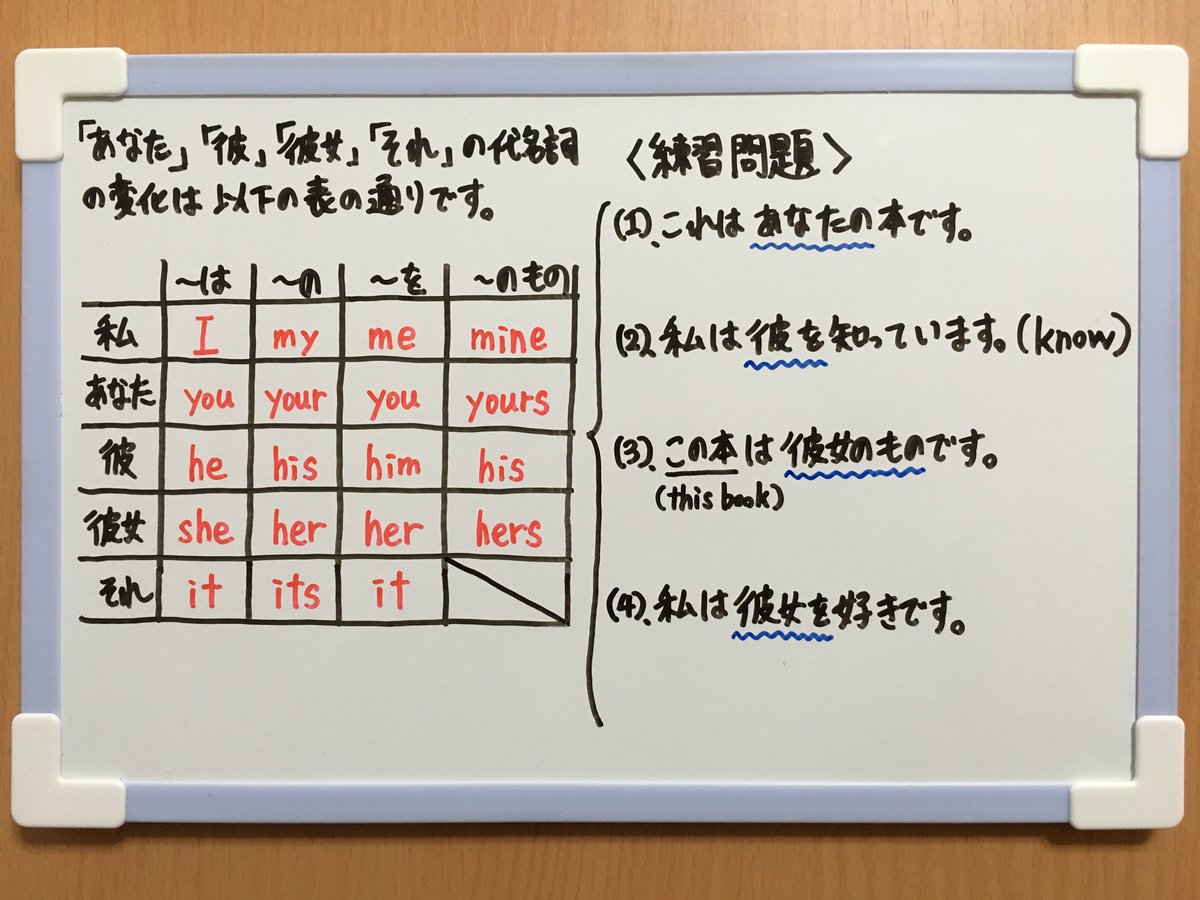 「あなた」「彼」「彼女」「それ」の代名詞
の変化は以下の表の通りです。
~は ~の ~を ~のもの
私 I my me mine
あなた you your you yours
彼 he his him his
彼女 she her her hers
それ it its it
〈練習問題〉
(1)、これはあなたの本です。
(2)、私は彼を知っています。(know)
(3)、この本は彼女のものです。
(this book)
(4)、私は彼女を好きです。